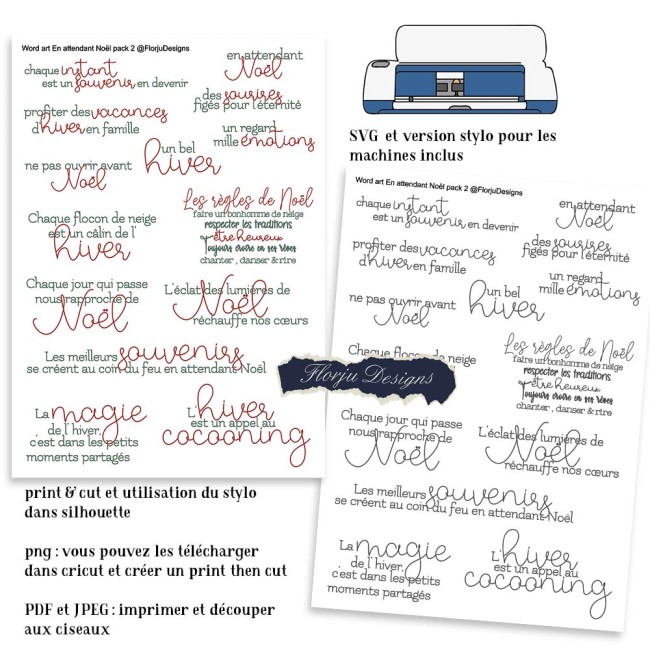 Word art En attendant Noël pack 2 @FlorjuDesigns
chaque instant
est un souvenir en devenir
en attendant
Noël
des sourires
figés pour l'éternité
profiter des vacances
d'hiver en famille
un regard
mille émotions
ne pas ouvrir avant
Noël
un bel
hiver
Les règles de Noël
faire un bonhomme de neige
respecter les traditions
être heureux
toujours croire en ses rêves
chanter , danser & rire
Chaque flocon de neige
est un câlin de l'
hiver
Chaque jour qui passe
nous rapproche de
Noël
L'éclat des lumières de
Noël
réchauffe nos cœurs
Les meilleurs souvenirs
se créent au coin du feu en attendant Noël
La magie
de l'hiver,
c'est dans les petits
moments partagés
L'hiver
est un appel au
cocooning
SVG et version stylo pour les
machines inclus
Word art En attendant Noël pack 2 @FlorjuDesigns
chaque instant
est un souvenir en devenir
en attendant
Noël
des sourires
figés pour l'éternité
profiter des vacances
d'hiver en famille
un regard
mille émotions
ne pas ouvrir avant
Noël
un bel
hiver
Chaque flocon de neige
Les règles de Noël
faire un bonhomme de neige
respecter les traditions
être heureux
toujours croire en ses rêves
chanter , danser & rire
Florju Designs
Chaque jour qui passe
nous rapproche de
Noël
L'éclat des lumières de
Noël
réchauffe nos cœurs
Les meilleurs souvenirs
se créent au coin du feu en attendant Noël
La magie
de l'hiver,
c'est dans les petits
moments partagés
L'hiver
est un appel au
cocooning
print & cut et utilisation du stylo
dans silhouette
png : vous pouvez les télécharger
dans cricut et créer un print then cut
PDF et JPEG : imprimer et découper
aux ciseaux